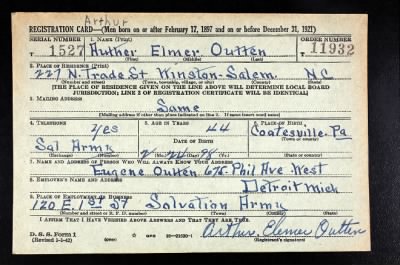 Arthur
REGISTRATION CARD—(Men born on or after February 17, 1897 and on or before December 31, 1921)
SERIAL NUMBER 1. NAME (Print) ORDER NUMBER
T 1527 Auther Elmer Outten 11932
(First) (Middle) (Last)
2. PLACE OF RESIDENCE (Print)
227 N-Trade St Winston-Salem. N.C
(Number and street) (Town, township, village, or city) (County) (State)
[THE PLACE OF RESIDENCE GIVEN ON THE LINE ABOVE WILL DETERMINE LOCAL BOARD
JURISDICTION; LINE 2 OF REGISTRATION CERTIFICATE WILL BE IDENTICAL]
3. MAILING ADDRESS
Same
(Mailing address if other than place indicated on line 2. If same insert word same)
4. TELEPHONE 5. AGE IN YEARS 6. PLACE OF BIRTH
yes 44 Coatesville.
DATE OF BIRTH (Town or county)
Sal Army 2 98 Pa
(Exchange) (Number) (Mo.) (Day) (Yr.) (State or country)
7. NAME AND ADDRESS OF PERSON WHO WILL ALWAYS KNOW YOUR ADDRESS
Eugene Outten 675 Phil Ave West
8. EMPLOYER'S NAME AND ADDRESS
Detroit Mich
9. PLACE OF EMPLOYMENT OR BUSINESS
120 E. 1st St Salvation Army
(Number and street or R. F. D. number) (Town) (County) (State)
I AFFIRM THAT I HAVE VERIFIED ABOVE ANSWERS AND THAT THEY ARE TRUE.
D. S. S. Form 1 Arthur, Elmer Outten
(Revised 1-1-42) (over) (Registrant's signature)